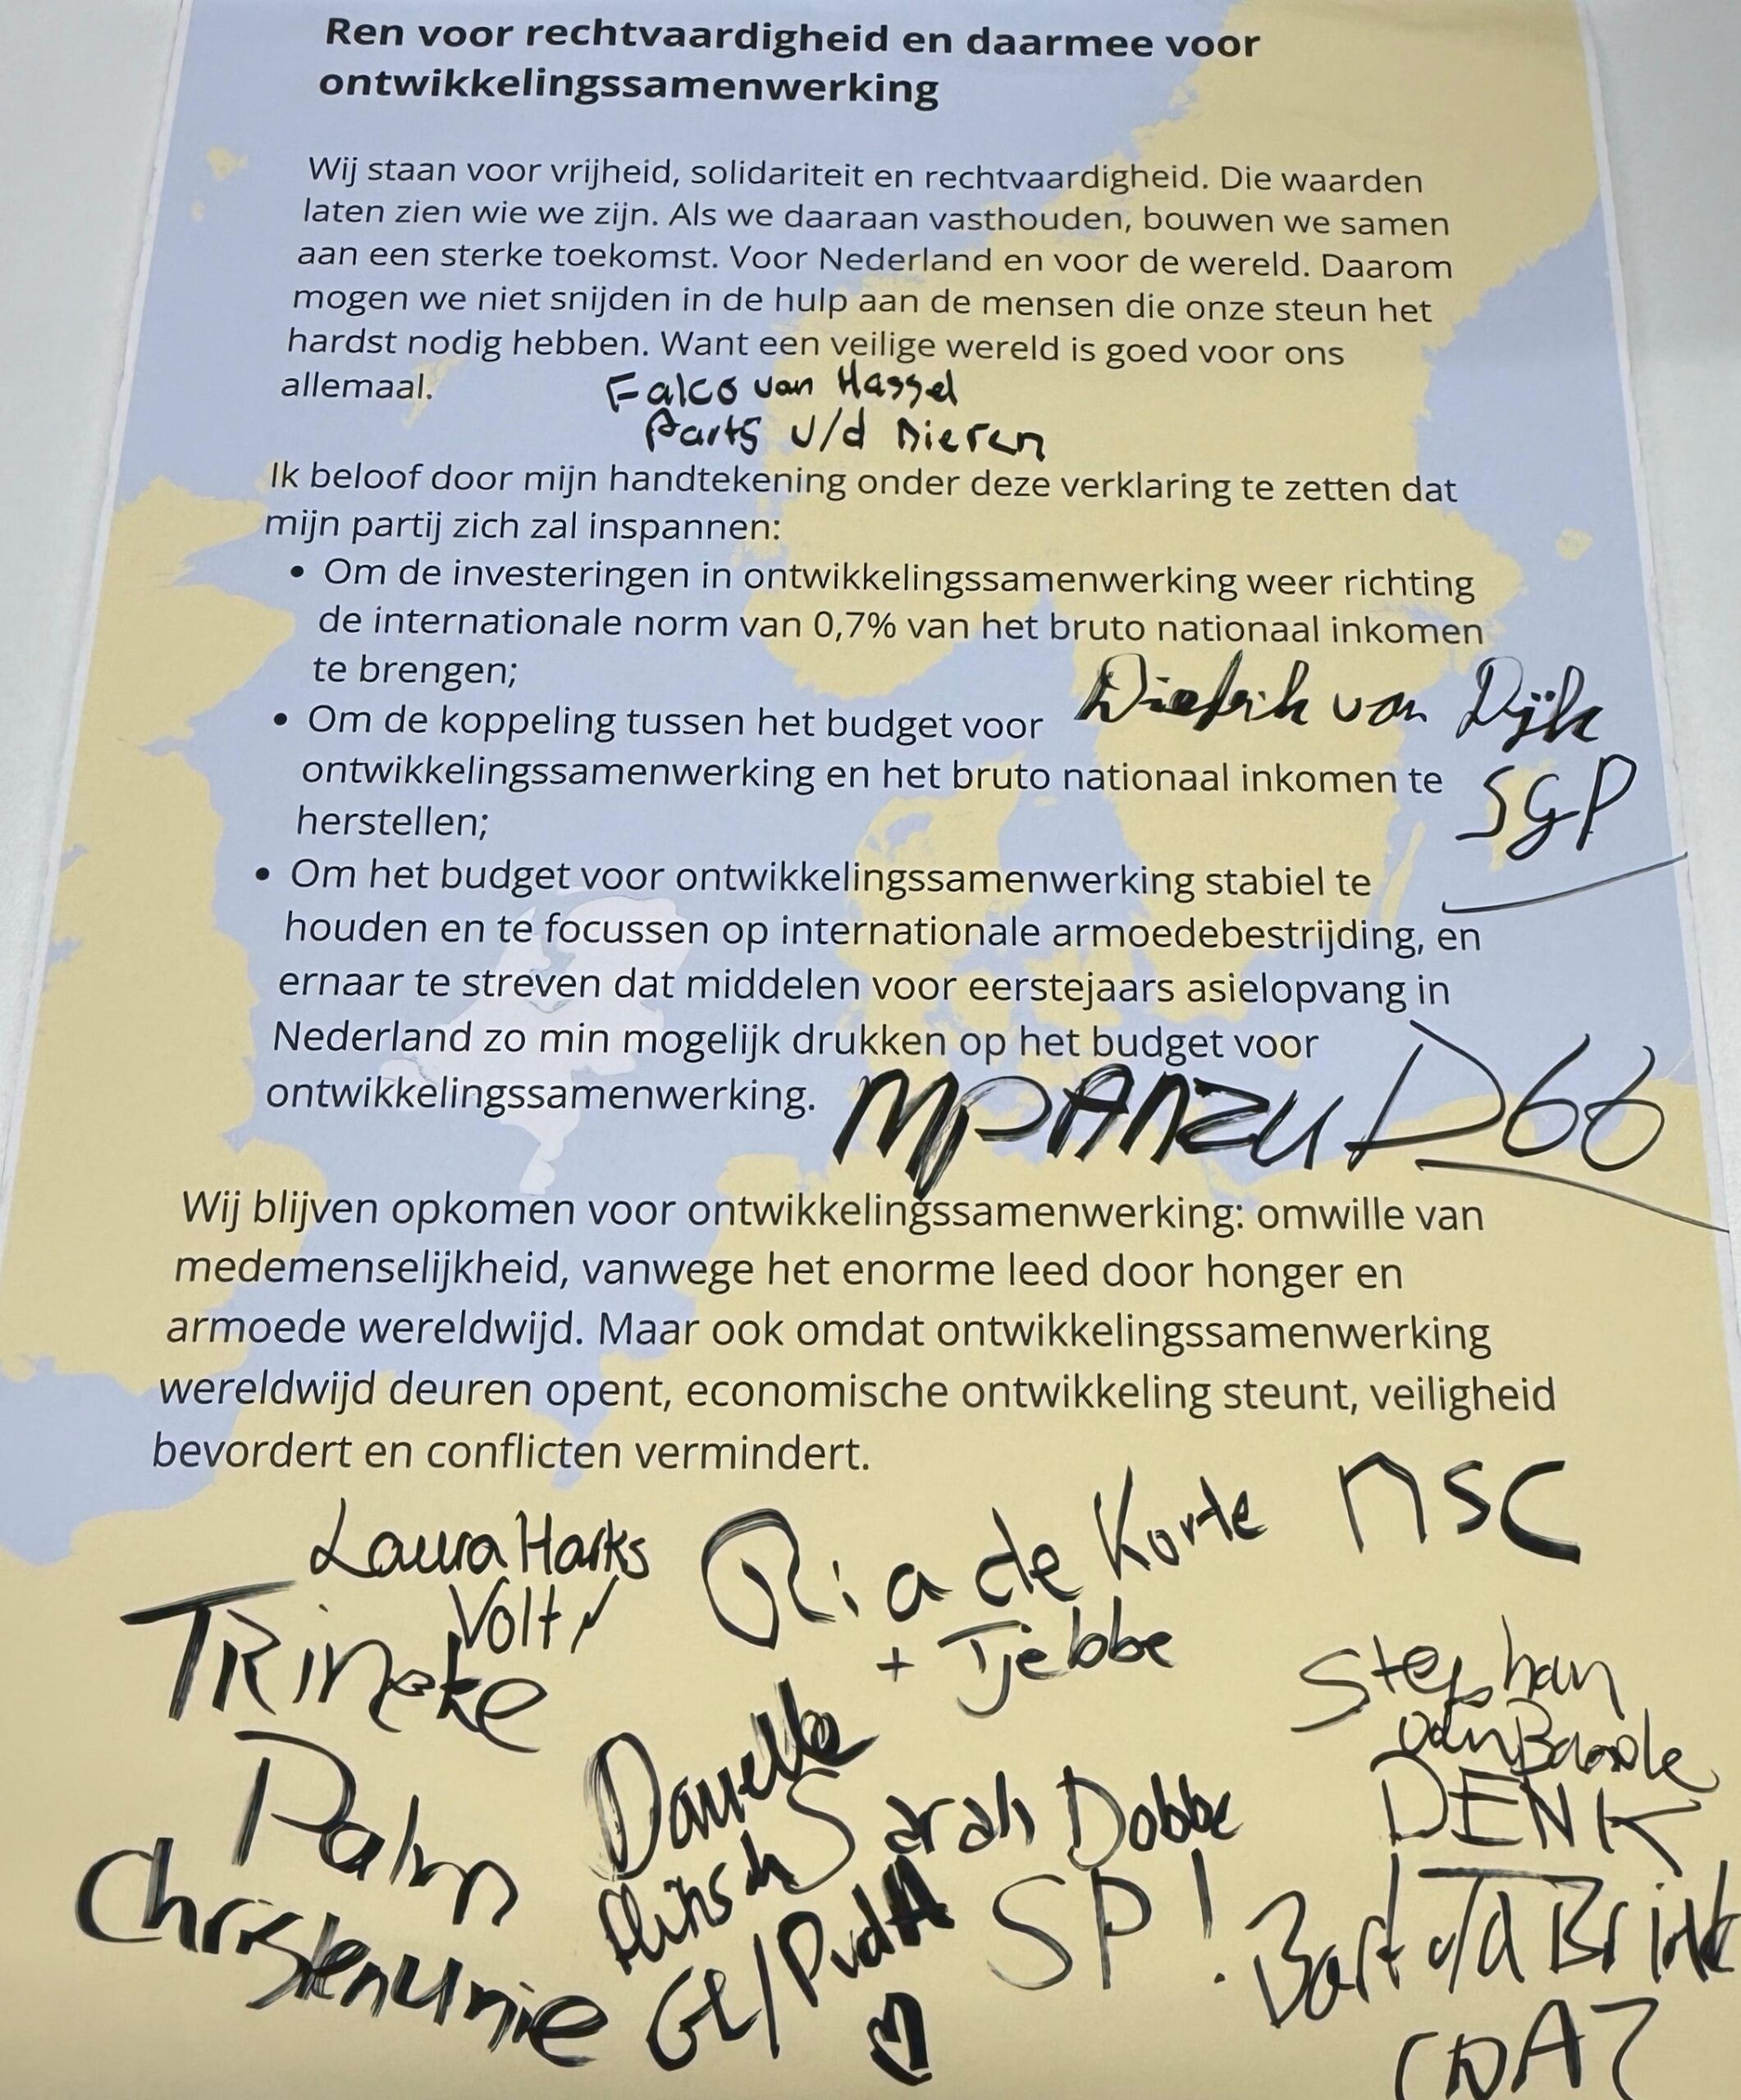 Ren voor rechtvaardigheid en daarmee voor
ontwikkelingssamenwerking
Wij staan voor vrijheid, solidariteit en rechtvaardigheid. Die waarden
laten zien wie we zijn. Als we daaraan vasthouden, bouwen we samen
aan een sterke toekomst. Voor Nederland en voor de wereld. Daarom
mogen we niet snijden in de hulp aan de mensen die onze steun het
hardst nodig hebben. Want een veilige wereld is goed voor ons
allemaal.
Falco van Hassel
Partij v/d Dieren
Ik beloof door mijn handtekening onder deze verklaring te zetten dat
mijn partij zich zal inspannen:
• Om de investeringen in ontwikkelingssamenwerking weer richting
de internationale norm van 0,7% van het bruto nationaal inkomen
te brengen;
Diederik van Dijk
• Om de koppeling tussen het budget voor
ontwikkelingssamenwerking en het bruto nationaal inkomen te
herstellen;
SGP
• Om het budget voor ontwikkelingssamenwerking stabiel te
houden en te focussen op internationale armoedebestrijding, en
ernaar te streven dat middelen voor eerstejaars asielopvang in
Nederland zo min mogelijk drukken op het budget voor
ontwikkelingssamenwerking.
MPANZU D66
Wij blijven opkomen voor ontwikkelingssamenwerking: omwille van
medemenselijkheid, vanwege het enorme leed door honger en
armoede wereldwijd. Maar ook omdat ontwikkelingssamenwerking
wereldwijd deuren opent, economische ontwikkeling steunt, veiligheid
bevordert en conflicten vermindert.
Laura Harks
Volt
Ria de Korte NSC
+ Tjebbe
Trineke
Palm
Christenunie
Stephan
van Baarle
DENK
Danielle
Hirsch
GL/PvdA
Sarah Dobbe
SP!
Bart v/d Brink
CDA